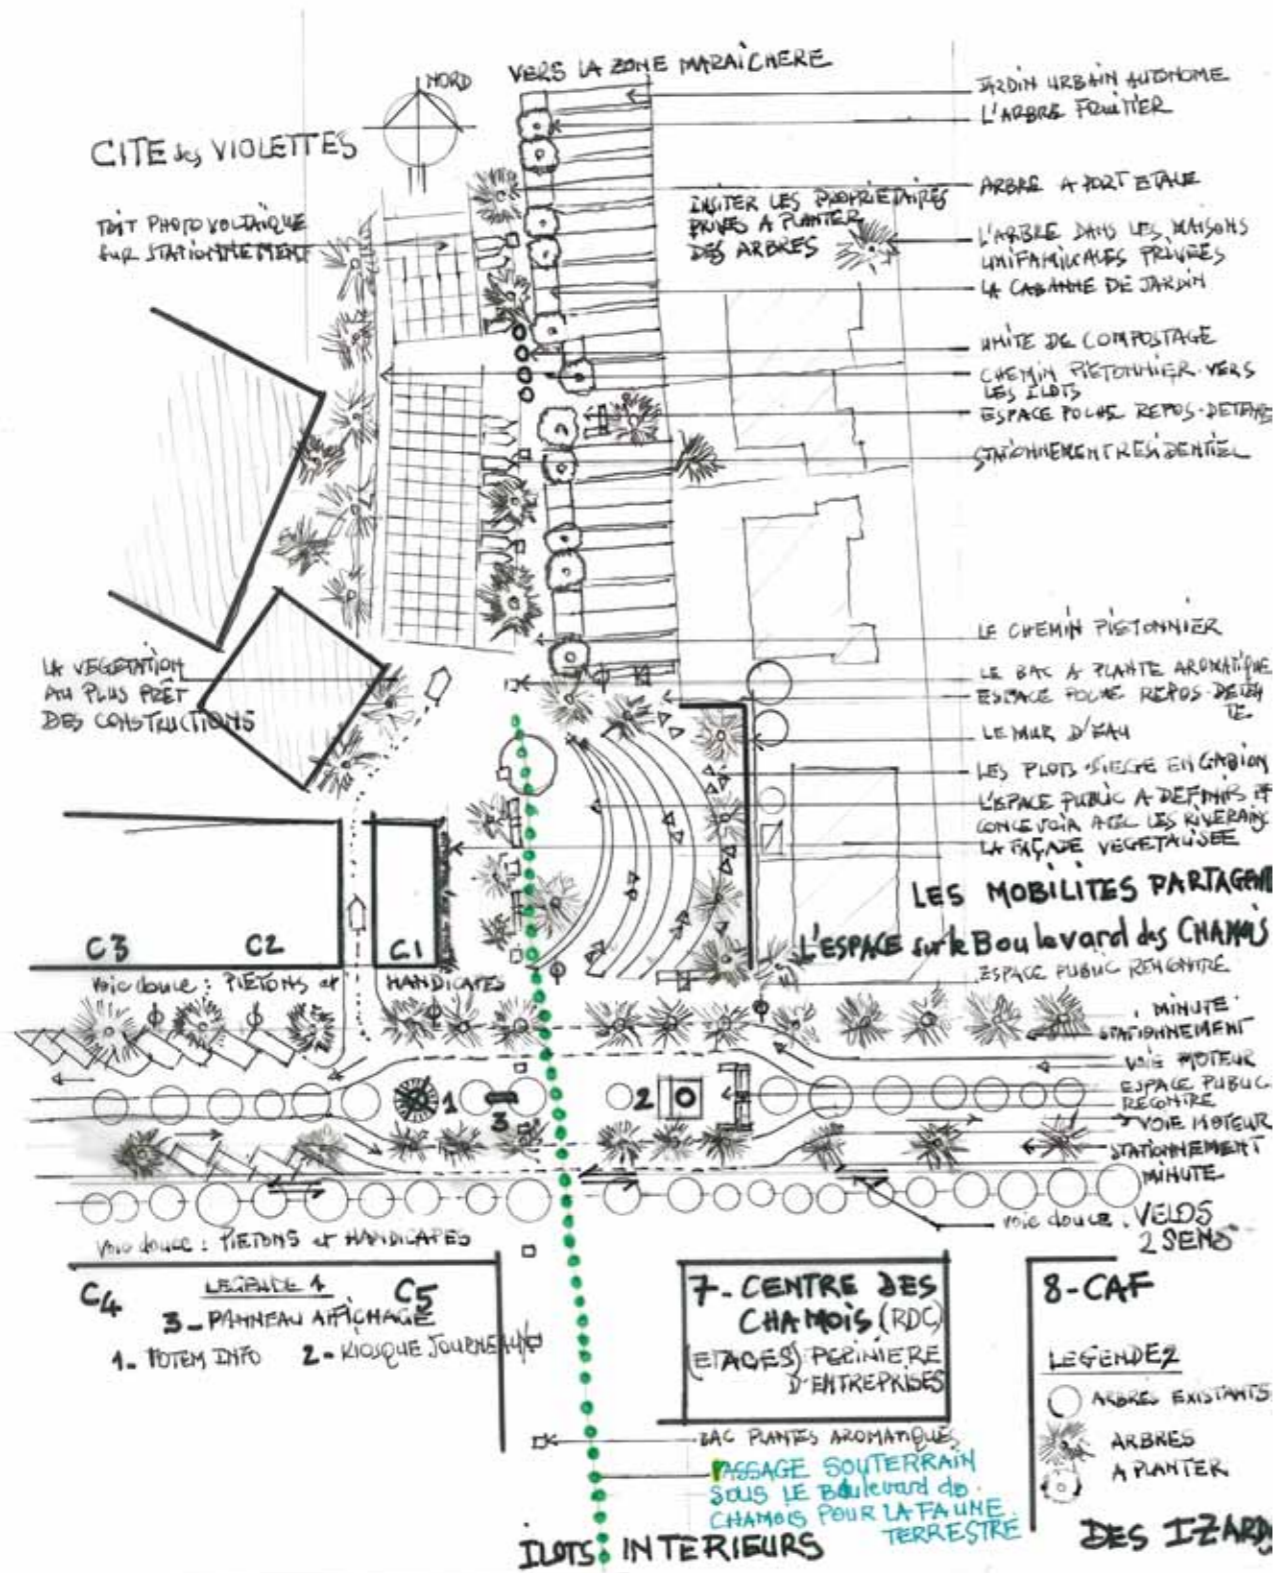 NORD
VERS LA ZONE MARAICHERE
CITE des VIOLETTES
TOIT PHOTOVOLTAIQUE
SUR STATIONNEMENT
JARDIN URBAIN AUTONOME
L'ARBRE FRUITIER
ARBRE A PORT ETALE
INSITER LES PROPRIETAIRES
PRIVES A PLANTER
DES ARBRES
L'ARBRE DANS LES MAISONS
UNIFAMILIALES PRIVEES
LA CABANNE DE JARDIN
UNITE DE COMPOSTAGE
CHEMIN PIETONNIER VERS
LES ILOTS
ESPACE POCHE REPOS-DETENTE
STATIONNEMENT RESIDENTIEL
LE CHEMIN PIETONNIER
LA VEGETATION
AU PLUS PRÊT
DES CONSTRUCTIONS
LE BAC A PLANTE AROMATIQUE
ESPACE POCHE REPOS-DETEN
TE
LE MUR D'EAU
LES PLOTS-SIEGE EN GABION
L'ESPACE PUBLIC A DEFINIR ET
CONCEVOIR AVEC LES RIVERAINS
LA FAÇADE VEGETALISEE
LES MOBILITES PARTAGENT
L'ESPACE sur le Boulevard des CHAMOIS
ESPACE PUBLIC RENCONTRE
C3 C2 C1
voie douce : PIETONS et HANDICAPES
MINUTE
STATIONNEMENT
VOIE MOTEUR
ESPACE PUBLIC
RECONTRE
VOIE MOTEUR
STATIONNEMENT
MINUTE
1 3 2
voie douce : VELOS
2 SENS
voie douce : PIETONS et HANDICAPES
C4 LEGENDE 1 C5
3_ PANNEAU AFFICHAGE
1_ TOTEM INFO 2_ KIOSQUE JOURNEAUX
7-CENTRE DES
CHAMOIS (RDC)
(ETAGES) PEPINIERE
D'ENTREPRISES
8-CAF
LEGENDE2
ARBRES EXISTANTS
ARBRES
A PLANTER
BAC PLANTES AROMATIQUES
PASSAGE SOUTERRAIN
SOUS LE Boulevard des
CHAMOIS POUR LA FAUNE
TERRESTRE
ILOTS INTERIEURS
DES IZARDS